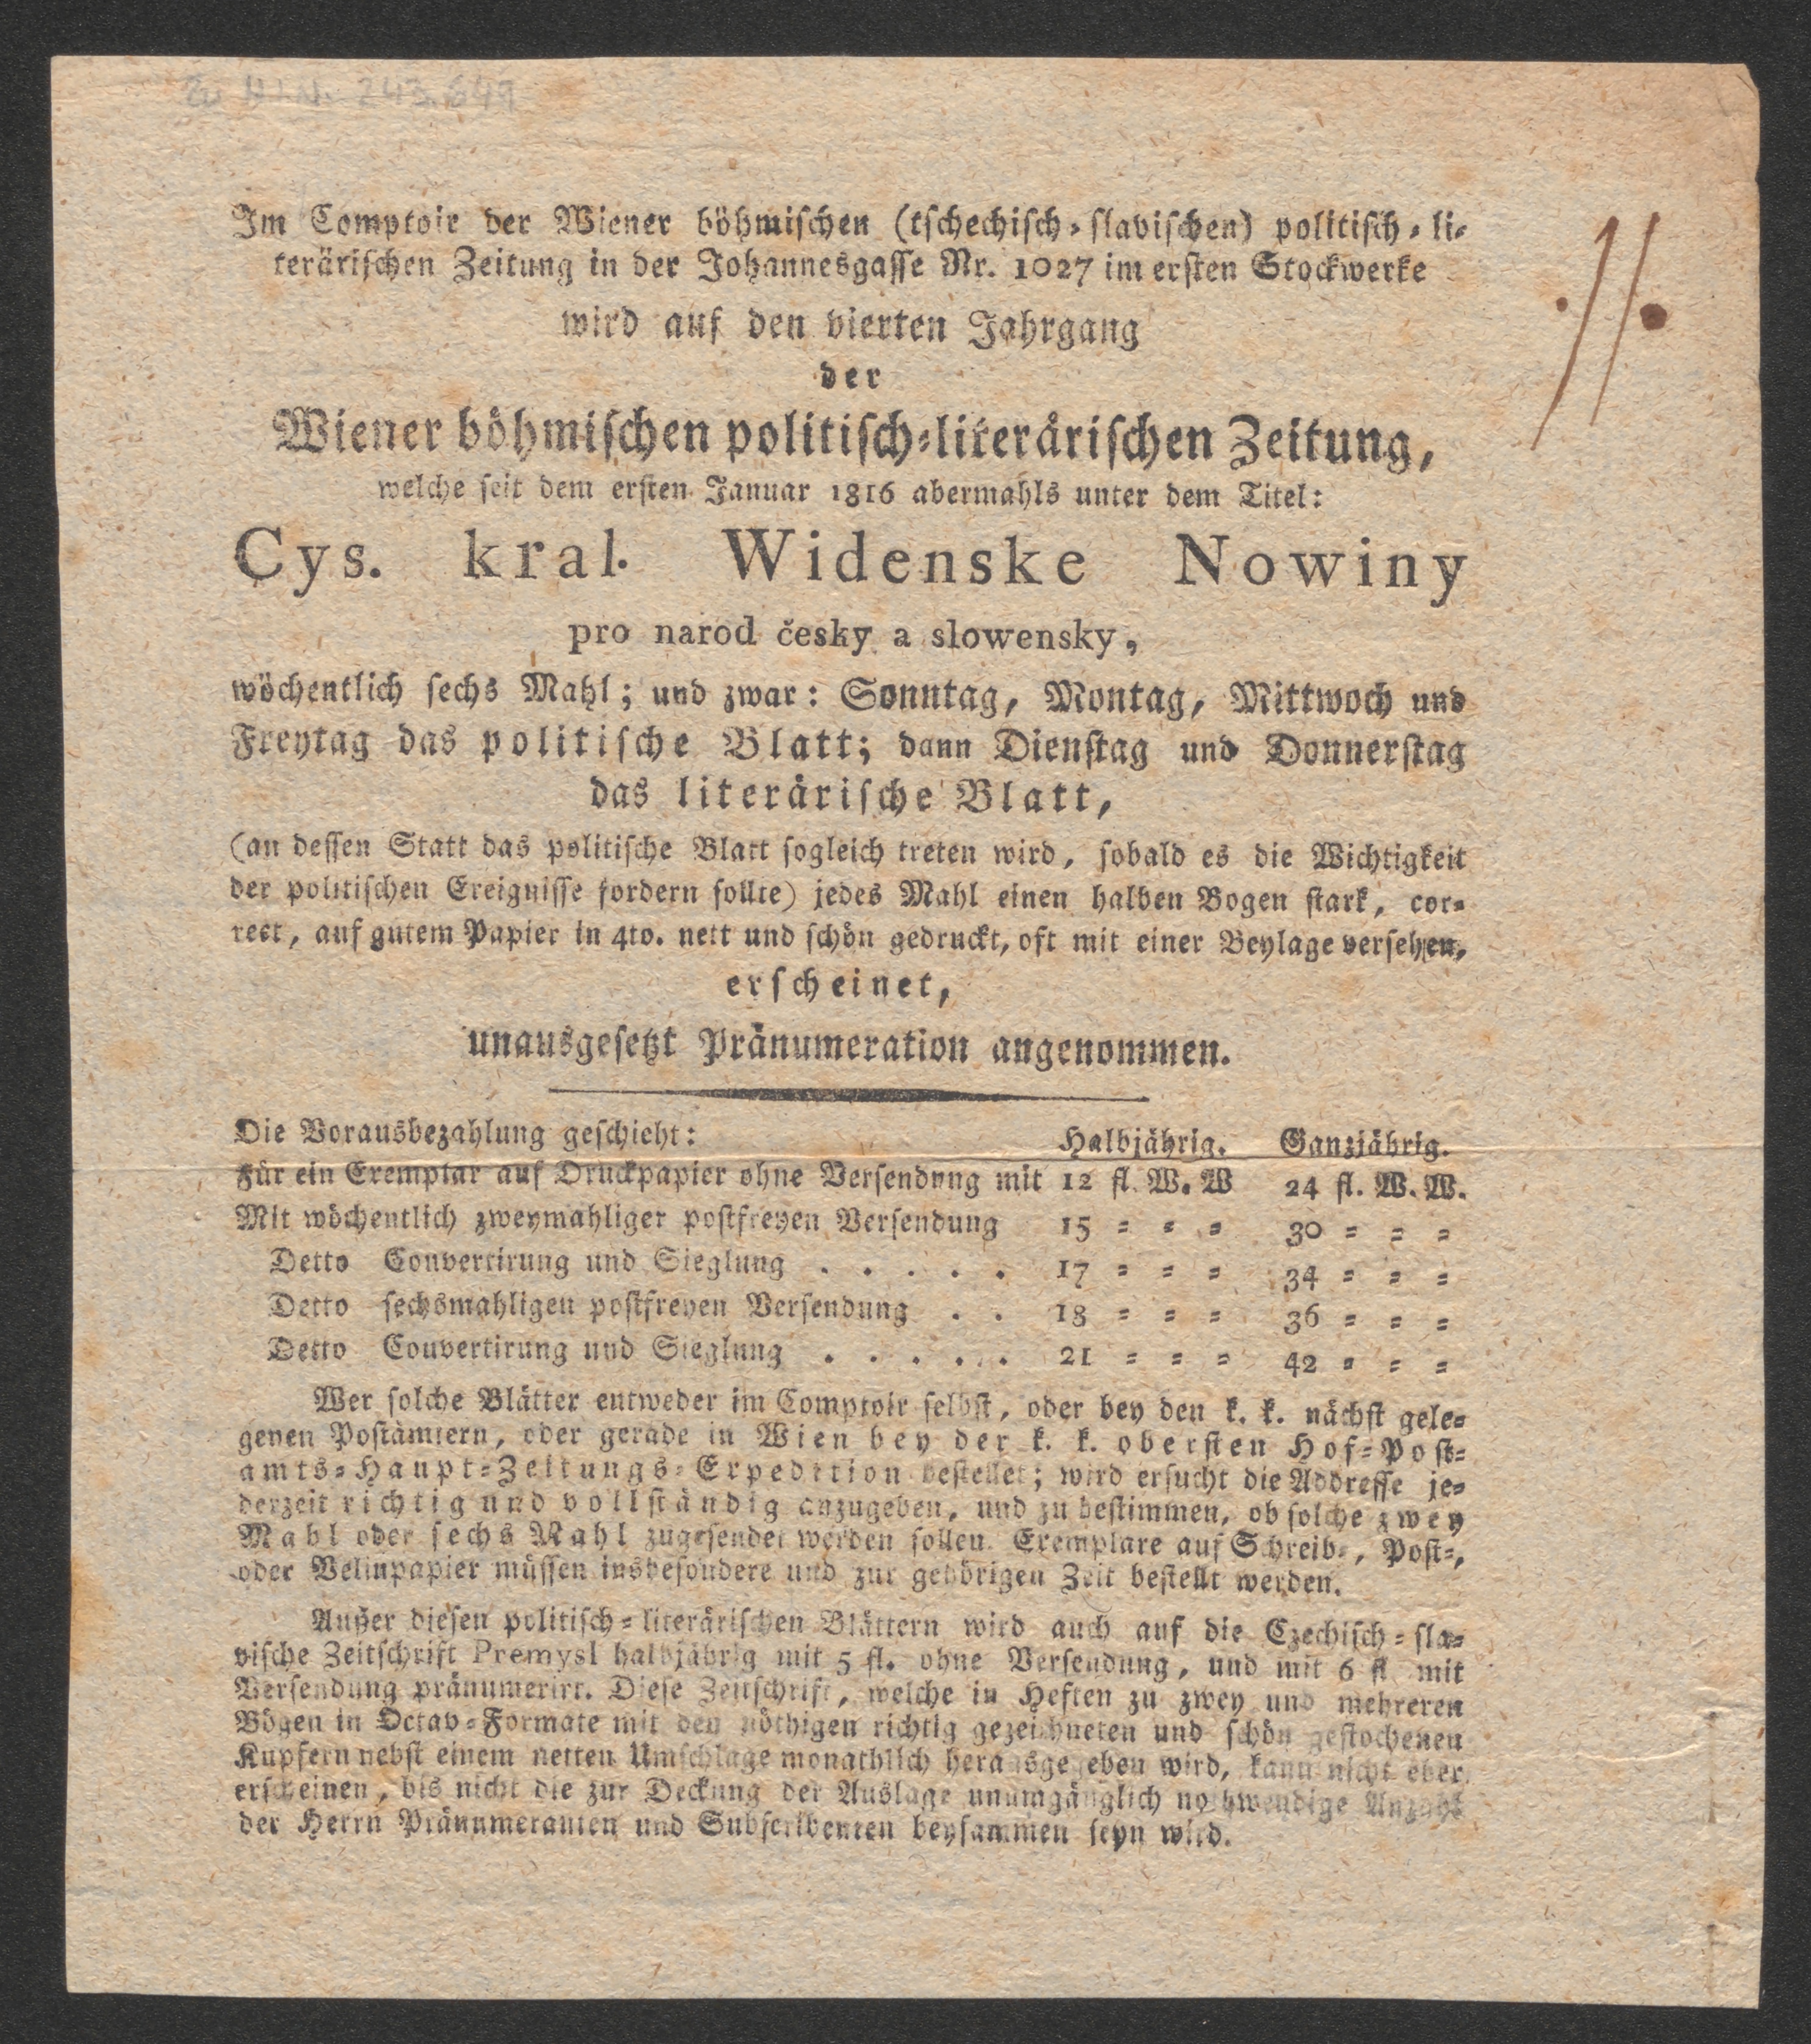 Zu H.I.N. 243.649
Im Comptoir der Wiener böhmischen (tschechisch-slavischen) politisch-li-
terärischen Zeitung in der Johannesgasse Nr. 1027 im ersten Stockwerke
wird auf den vierten Jahrgang
der
Wiener böhmischen politisch-literärischen Zeitung,
welche seit dem ersten Januar 1816 abermahls unter dem Titel:
Cys. kral. Widenske Nowiny
pro narod česky a slowensky,
wöchentlich sechs Mahl; und zwar: Sonntag, Montag, Mittwoch und
Freytag das politische Blatt; dann Dienstag und Donnerstag
das literärische Blatt,
(an dessen Statt das politische Blatt sogleich treten wird, sobald es die Wichtigkeit
der politischen Ereignisse fordern sollte) jedes Mahl einen halben Bogen stark, cor-
rect, auf gutem Papier in 4to. nett und schön gedruckt, oft mit einer Beylage versehen,
erscheinet,
unausgesetzt Pränumeration angenommen.
Die Vorausbezahlung geschieht: Halbjährig. Ganzjährig.
Für ein Exemplar auf Druckpapier ohne Versendung mit 12 fl. W. W 24 fl. W. W.
Mit wöchentlich zweymahliger postfreyen Versendung 15 = = = 30 = = =
Detto Couvertirung und Sieglung . . . . . 17 = = = 34 = = =
Detto sechsmahligen postfreyen Versendung . . 18 = = = 36 = = =
Detto Couvertirung und Sieglung . . . . . 21 = = = 42 = = =
Wer solche Blätter entweder im Comptoir selbst, oder bey den k. k. nächst gele-
genen Postämtern, oder gerade in Wien bey der k. k. obersten Hof-Post-
amts-Haupt-Zeitungs-Expedition bestellet; wird ersucht die Addresse je-
derzeit richtig und vollständig anzugeben, und zu bestimmen, ob solche zwey
Mahl oder sechs Mahl zugesendet werden sollen. Exemplare auf Schreib-, Post-,
oder Velinpapier müssen insbesondere und zur gehörigen Zeit bestellt werden.
Außer diesen politisch-literärischen Blättern wird auch auf die Czechisch-sla-
vische Zeitschrift Premysl halbjährig mit 5 fl. ohne Versendung, und mit 6 fl mit
Versendung pränumerirt. Diese Zeitschrift, welche in Heften zu zwey und mehreren
Bögen in Octav-Formate mit den nöthigen richtig gezeichneten und schön gestochenen
Kupfern nebst einem netten Umschlage monathlich herausgegeben wird, kann nicht eher
erscheinen, bis nicht die zur Deckung der Auslage unumgänglich nothwendige Anzahl
der Herrn Pränumeranten und Subscribenten beysammen seyn wird.